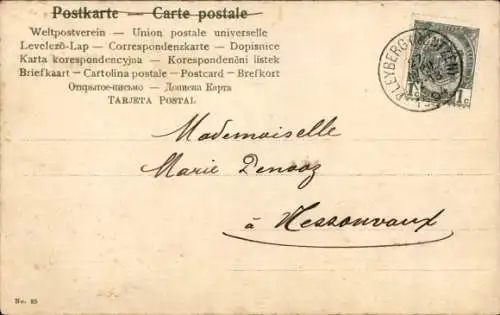 Postkarte — Carte postale
Weltpostverein — Union postale universelle
Levelező-Lap — Correspondenzkarte — Dopisnice
Karta korespondencyjna — Korespondenční lístek
Briefkaart — Cartolina postale — Postcard — Brefkort
Открытое письмо — Дописна Карта
TARJETA POSTAL
1c 1c
Mademoiselle
Marie Denooz
à Nessonvaux
No. 95